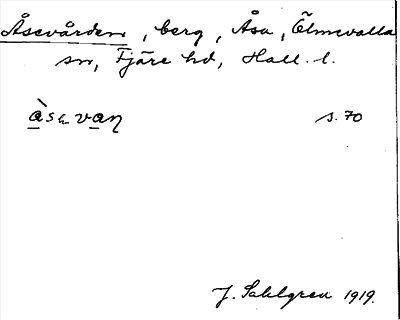 Åsevården, berg, Åsa, Ölmevalla
sn, Fjäre hd, Hall. l.
àsə vaɳ s. 70
J. Sahlgren 1919.